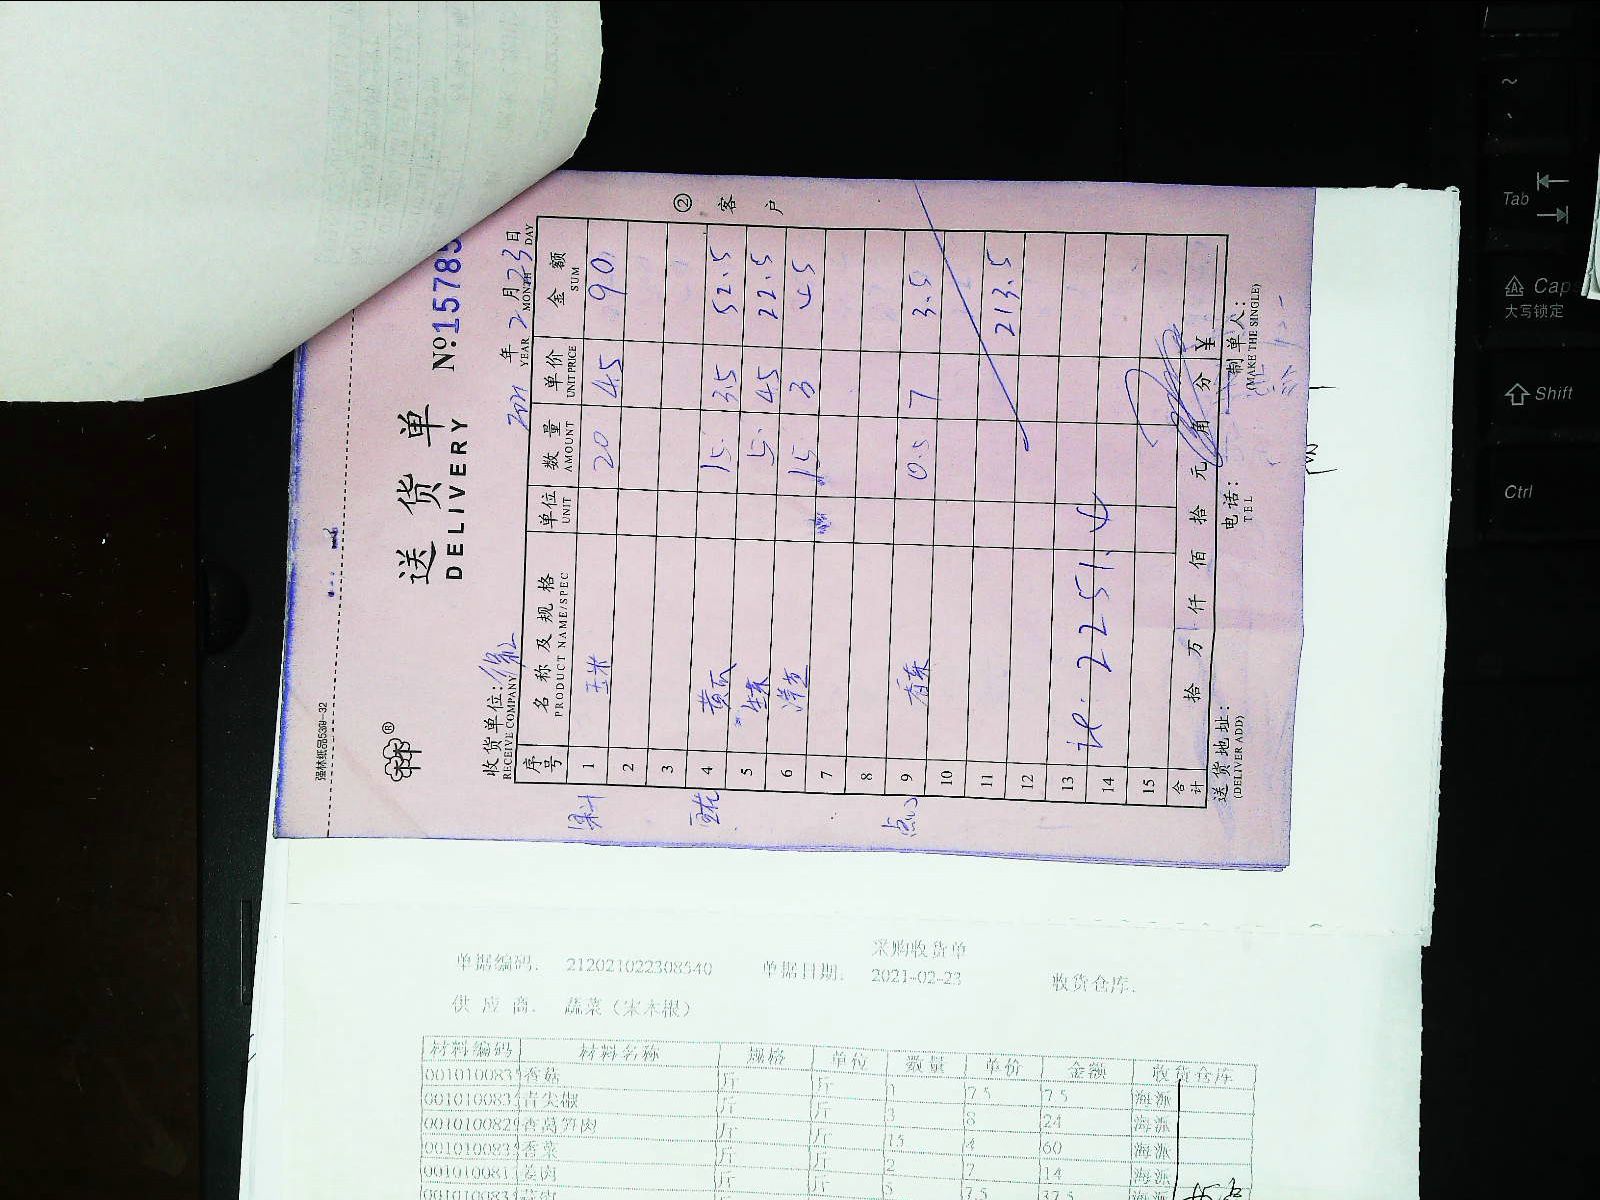 强林纸品539-32
送货单
DELIVERY
№15785
收货单位:
RECEIVE COMPANY
2021 年 2 月 23 日
YEAR MONTH DAY
序号 名称及规格 单位 数量 单价 金额
PRODUCT NAME/SPEC UNIT AMOUNT UNIT PRICE SUM
1 玉米 20 4.5 90
2
3
4 黄瓜 15 3.5 52.5
5 5 4.5 22.5
6 15 3 45
7
8
点心 9 香菜 0.5 7 3.5
10
11 213.5
12
13
14 2251.4
15
合计 拾 万 仟 佰 拾 元 角 分 ¥
送货地址: 电话: 制单人:
(DELIVER ADD) TEL (MAKE THE SINGLE)
② 客户
采购收货单
单据编码. 212021022308540 单据日期. 2021-02-23 收货仓库.
供应商. 蔬菜（宋木银）
材料编码 材料名称 规格 单位 数量 单价 金额 收货仓库
001010083 香菇 斤 斤 1 7.5 7.5 海派
001010083 青尖椒 斤 斤 3 8 24 海派
001010082 香莴笋肉 斤 斤 15 4 60 海派
001010083 香菜 斤 斤 2 7 14 海派
Tab
Cap
大写锁定
Shift
Ctrl